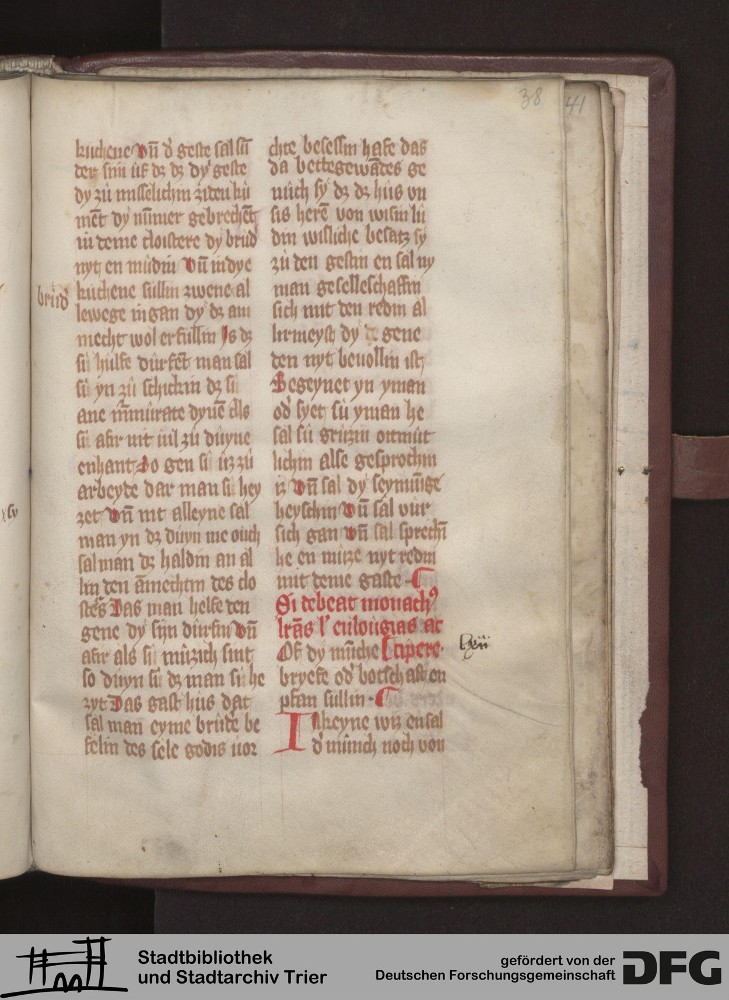 38
41
kuchene vn̄ d' geste sal sū
der sin uf dz dz dy geste
dy zu misselichin ziten ku
mēt dy nūmer gebrechēt
in deme cloistere dy brud'
nyt en mudin Vn̄ in dye
kuchene sullin zwene al
brud'
lewege in gan dy dz am
mecht wol erfullin Is dz
si hulfe durfēt man sal
si yn zu schickin dz si
ane murmurate dynē Als
si afir nit uil zu duyne
enhant so gen si uz zu
arbeyte dar man si hey
zet Vn̄ nit alleyne sal
man yn dz duyn me ouch
sal man dz haldin an al
lin den āmechtin des clo
sters Das man helfe den
gene dy sijn durfin Vn̄
afir als si muzich sint
so duyn si dz man si he
zyt Das gast hus dat
sal man eyme brude be
felin des sele godis uor
chte besessin hafe das
da bettegewādes ge
nuch sy dz dz hus vn
sis herē von wisin lu
din wisliche besatz sy
zu den gestin en sal ny
man geselleschaffin
sich mit den redin al
hirmeyst dy gene
den nyt beuollin ist
Begeynet yn yman
od' syet su yman he
sal su gruzin oitmut
lichin alse gesprochin
iz Vn̄ sal dy seynunge
heyschin Vn̄ sal vur
sich gan Vn̄ sal sprechn̄
he en muze nyt redin
mit deme gaste
Si debeat monach9
lrās l' eulougias ac
Of dy mūche cipere.
lxii
bryefe od' botschaft en
pfan sullin
In keyne wiz en sal
d' munich noch von
Stadtbibliothek
und Stadtarchiv Trier
gefördert von der
Deutschen Forschungsgemeinschaft
DFG